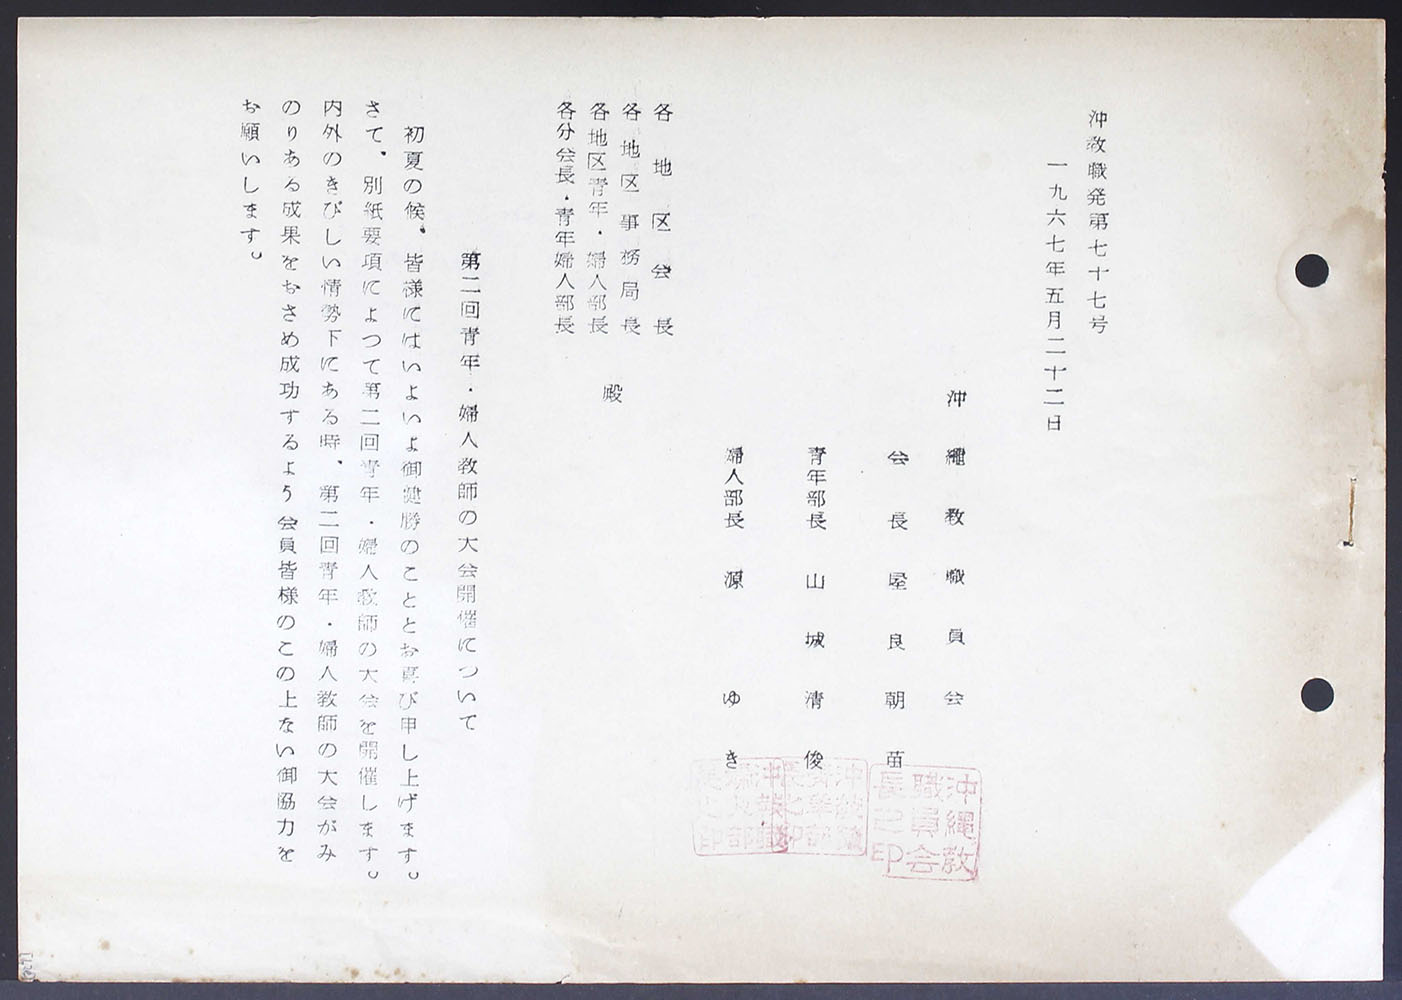 沖教職発第七十七号
一九六七年五月二十二日
沖縄教職員会
会長屋良朝苗
青年部長山城清俊
婦人部長源ゆき
沖縄教
職員会
長之印
各地区会長
各地区事務局長
各地区青年・婦人部長
各分会長・青年婦人部長
殿
第二回青年・婦人教師の大会開催について
初夏の候、皆様にはいよいよ御健勝のこととお喜び申し上げます。
さて、別紙要項によつて第二回青年・婦人教師の大会を開催します。
内外のきびしい情勢下にある時、第二回青年・婦人教師の大会がみ
のりある成果をおさめ成功するよう会員皆様のこの上ない御協力を
お願いします。